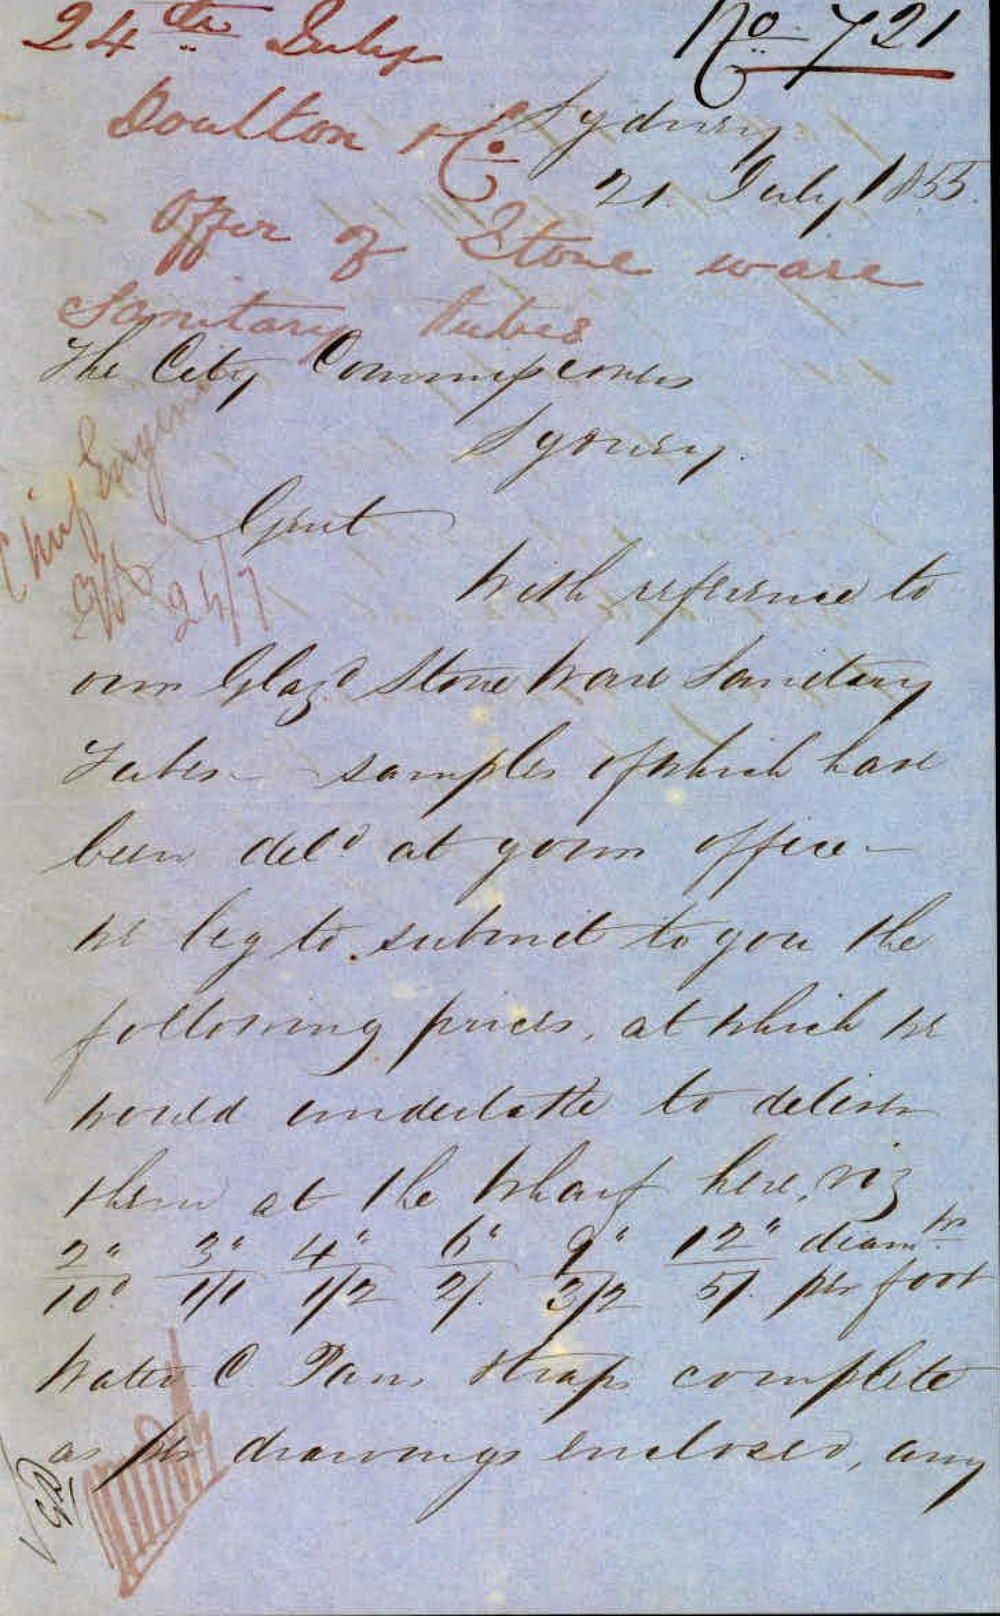 24th July
No. 721
Doulton & Co.
Sydney
21. July 1855.
Offer of Stone ware
Sanitary Tubes
The City Commissioners
Sydney.
Chief Engineer
24/7
Gent
With reference to
our Glazd Stone Ware Sanitary
Tubes - samples of which have
been deld at your office -
we beg to submit to you the
following prices, at which we
would undertake to deliver
them at the Wharf here, viz
2" 3" 4" 6" 9" 12" diamtr
10d 1/1 1/2 2/. 3/2 5/. per foot
Water C. Pans & traps complete
as per drawings enclosed, any